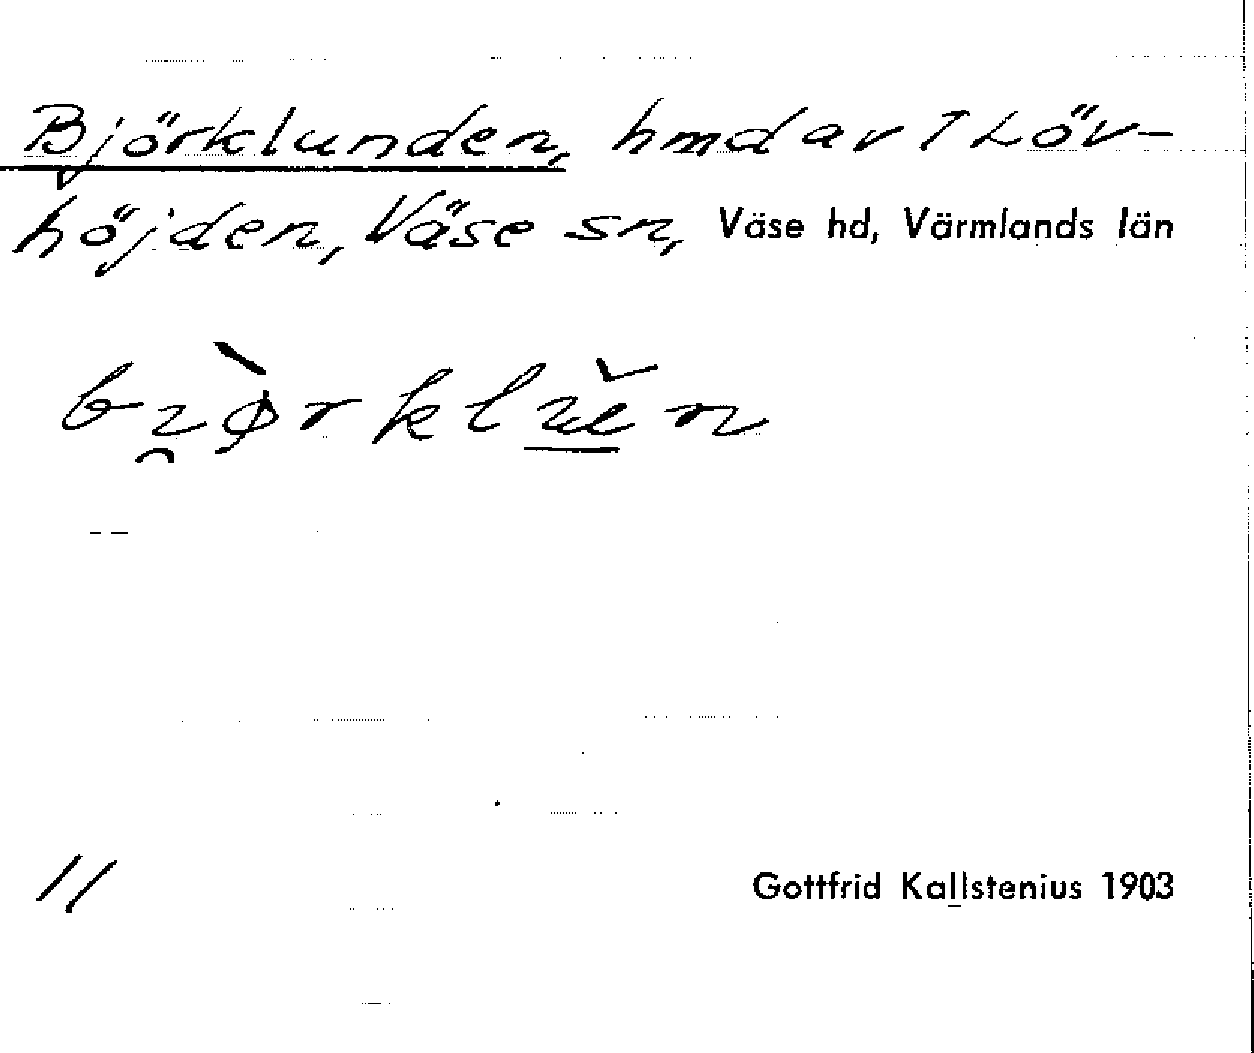 Björklunden, hmd av 1 Löv-
höjden, Väse sn, Väse hd, Värmlands län
11
Gottfrid Kallstenius 1903